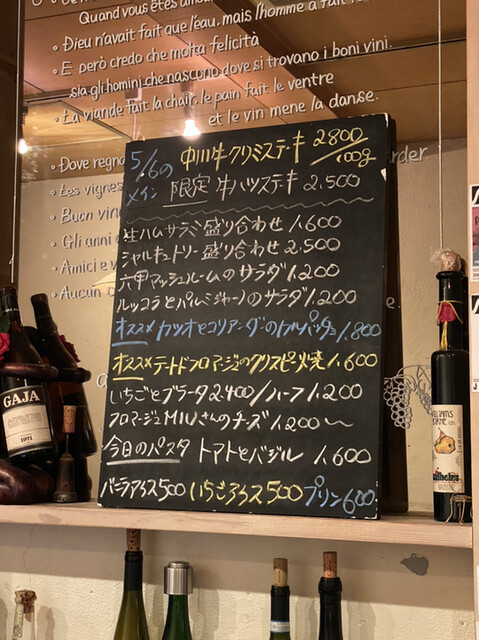 Quand vous êtes
Dieu n'avait fait que l'eau, mais l'homme a fait
E però credo che molta felicità
sia gli homini che nascono dove si trovano i boni vini.
La viande fait la chair, le pain fait le ventre
et le vin mene la danse.
Dove regn
Les vignes
Buon vin
Gli anni
Amici e v
Aucun
5/6の メイン
中川牛クリミステーキ 2800/100g
限定 牛ハツステーキ 2.500
生ハムサラミ盛り合わせ 1.600
シャルキュトリー盛り合わせ 2.500
六甲マッシュルームのサラダ 1.200
ルッコラとパルミジャーノのサラダ 1.200
オススメ カツオとコリアンダーのカルパッチョ 1.800
オススメ テートドフロマージュのクリスピー焼 1.600
いちごとブラータ 2.400/ハーフ 1.200
フロマージュMIUさんのチーズ 1.200〜
今日のパスタ トマトとバジル 1.600
バニラアイス500 いちごアイス500 プリン600
GAJA
1971
WILLIAMS